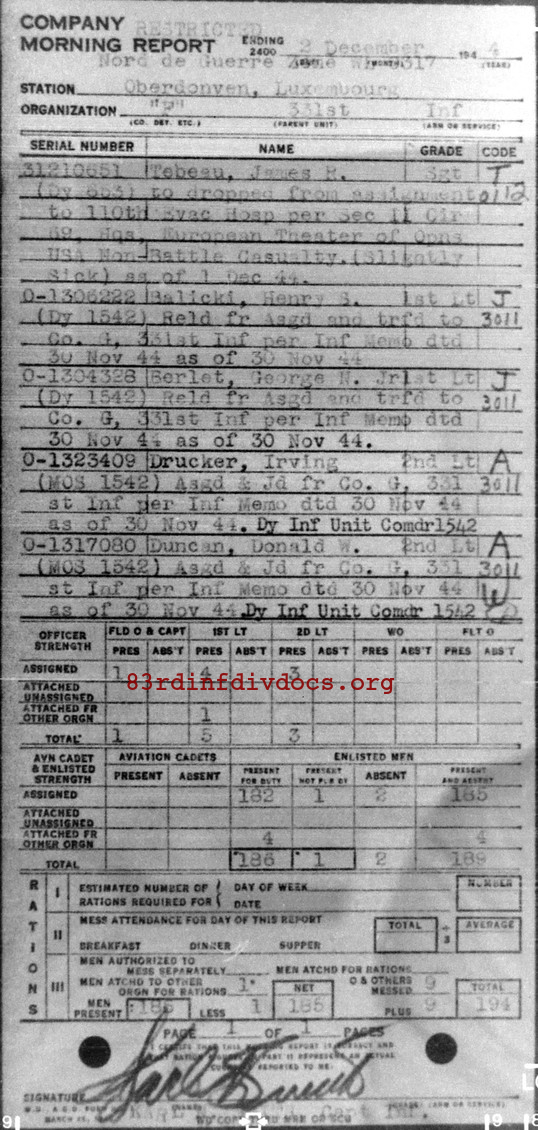 COMPANY
MORNING REPORT
RESTRICTED
ENDING 2400 2 December 194 4
(DAY) (MONTH) (YEAR)
Nord de Guerre Zone
STATION Oberdonven, Luxembourg
ORGANIZATION 331st Inf
(CO. DET. ETC.) (PARENT UNIT) (ARM OR SERVICE)
SERIAL NUMBER NAME GRADE CODE
31210651 Tebeau, James R. Sgt T
(Dy 653) to dropped from assignment 0112
to 110th Evac Hosp per Sec II Cir
69, Hqs, European Theater of Opns
USA Non-Battle Casualty.(Slightly
Sick) as of 1 Dec 44.
O-1306222 Balicki, Henry S. 1st Lt J
(Dy 1542) Reld fr Asgd and trfd to 3011
Co. G, 331st Inf per Inf Memo dtd
30 Nov 44 as of 30 Nov 44
O-1304328 Berlet, George N. Jr 1st Lt J
(Dy 1542) Reld fr Asgd and trfd to 3011
Co. G, 331st Inf per Inf Memo dtd
30 Nov 44 as of 30 Nov 44.
O-1323409 Drucker, Irving 2nd Lt A
(MOS 1542) Asgd & Jd fr Co. G, 331 3011
st Inf per Inf Memo dtd 30 Nov 44
as of 30 Nov 44. Dy Inf Unit Comdr 1542
O-1317080 Duncan, Donald W. 2nd Lt A
(MOS 1542) Asgd & Jd fr Co. G, 331 3011
st Inf per Inf Memo dtd 30 Nov 44
as of 30 Nov 44 Dy Inf Unit Comdr 1542
OFFICER STRENGTH FLD O & CAPT 1ST LT 2D LT WO FLT O
PRES ABS'T PRES ABS'T PRES ABS'T PRES ABS'T PRES ABS'T
ASSIGNED 1 4 3
83rdinfdivdocs.org
ATTACHED UNASSIGNED
ATTACHED FR OTHER ORGN 1
TOTAL 1 5 3
AVN CADET & ENLISTED STRENGTH AVIATION CADETS ENLISTED MEN
PRESENT ABSENT PRESENT FOR DUTY PRESENT NOT FOR DY ABSENT PRESENT AND ABSENT
ASSIGNED 182 1 2 185
ATTACHED UNASSIGNED
ATTACHED FR OTHER ORGN 4 4
TOTAL 186 1 2 189
RATIONS
I ESTIMATED NUMBER OF RATIONS REQUIRED FOR DAY OF WEEK DATE NUMBER
II MESS ATTENDANCE FOR DAY OF THIS REPORT TOTAL ÷ 3 AVERAGE
BREAKFAST DINNER SUPPER
III MEN AUTHORIZED TO MESS SEPARATELY MEN ATCHD FOR RATIONS
MEN ATCHD TO OTHER ORGN FOR RATIONS 1 NET O & OTHERS MESSED 9 TOTAL
MEN PRESENT 186 LESS 1 185 PLUS 9 194
PAGE 1 OF 1 PAGES
SIGNATURE